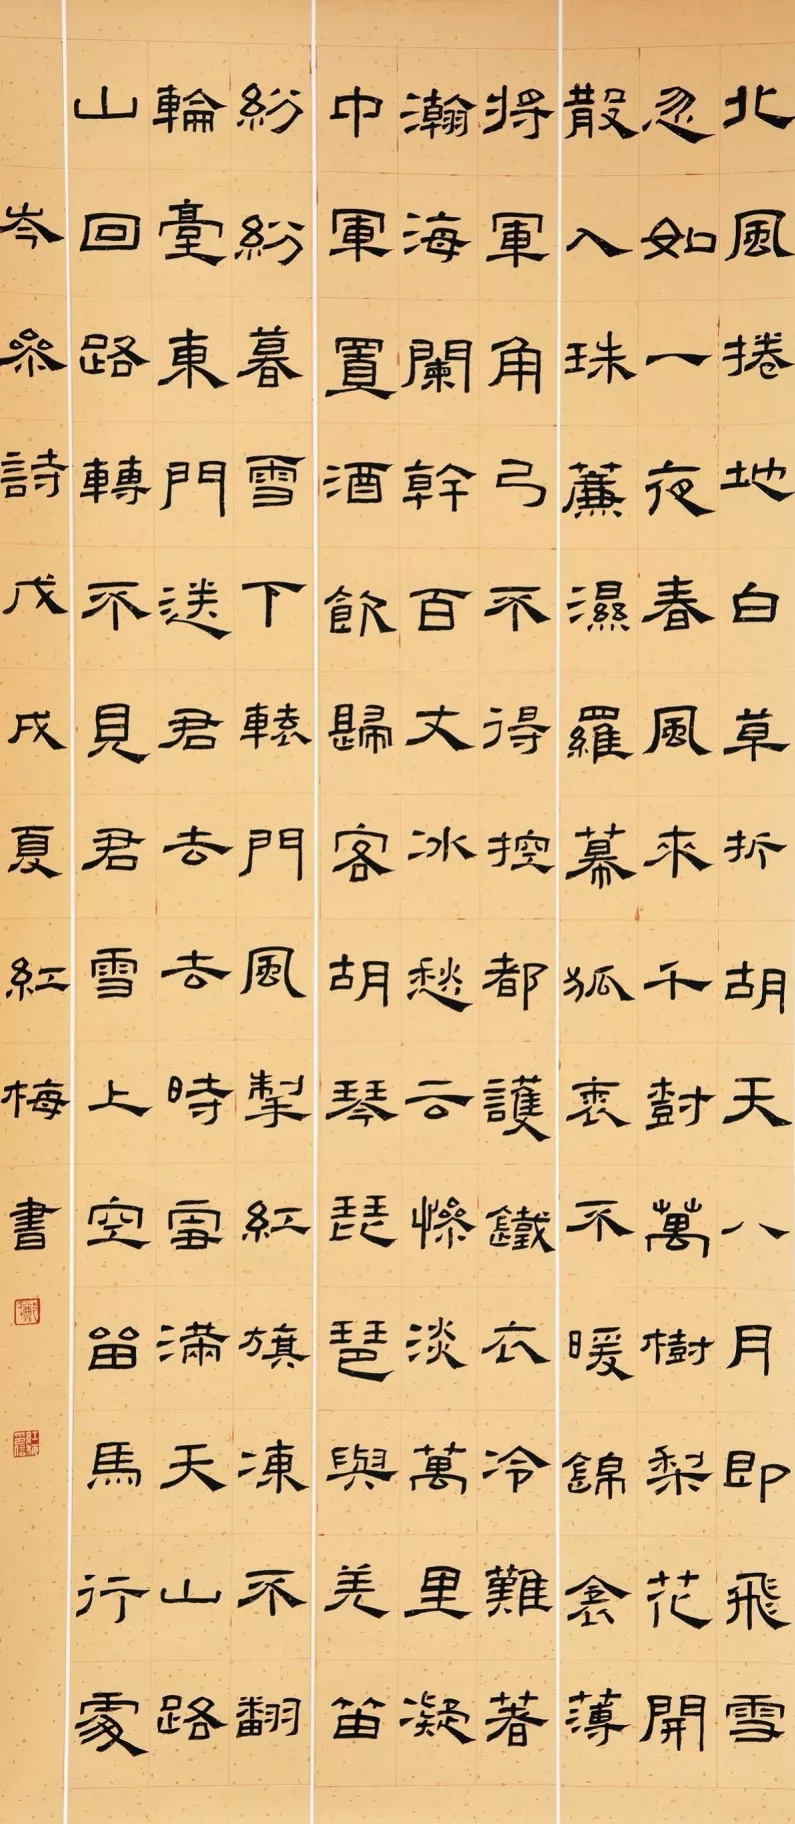 北風捲地白草折胡天八月即飛雪
忽如一夜春風來千封萬樹梨花開
散入珠薕濕羅幕狐裘不暖錦衾薄
將軍角弓不得控都護鐵衣冷難著
瀚海闌幹百丈冰愁云慘淡萬里凝
中軍置酒飲歸客胡琴琵琶與羌笛
紛紛暮雪下轅門風掣紅旗凍不翻
輪臺東門送君去去時雪滿天山路
山回路轉不見君雪上空留馬行處
岑參詩戊戌夏紅梅書